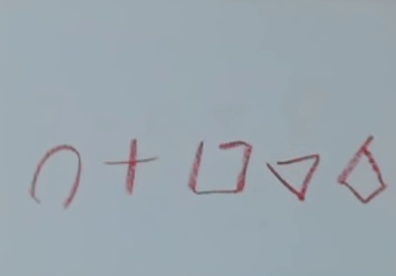 ∩ + □ ▽ ◇